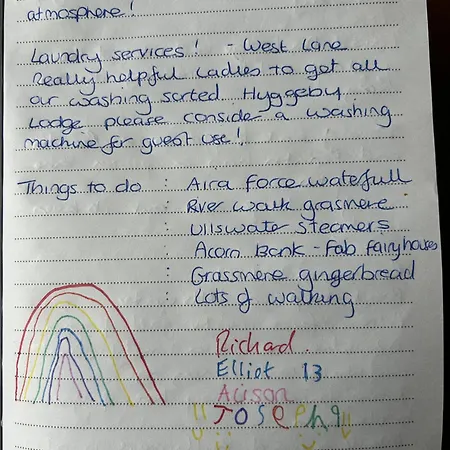 atmosphere!
Laundry services! - West Lane
Really helpful Ladies to get all
our washing sorted. Hyggeby
Lodge please consider a washing
machine for guest use!
Things to do : Aira force waterfull
: River walk grasmere
: Ullswater steamers
: Acorn Bank - Fab fairyhouses
: Grassmere gingerbread
: Lots of walking
Richard.
Elliot 13
Alison
Joseph 9